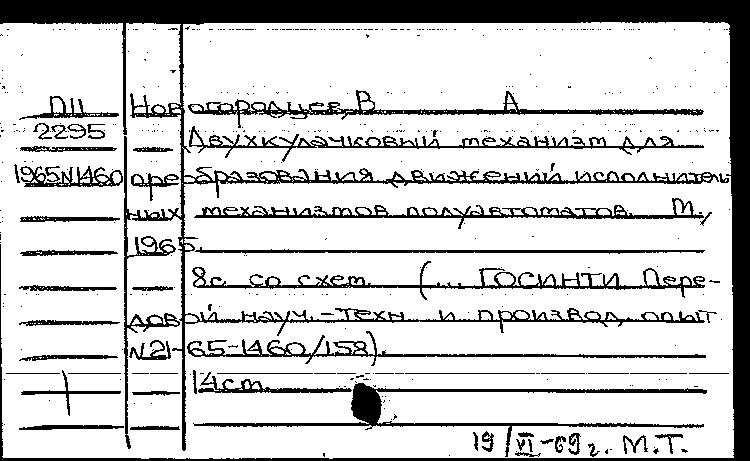 П11 Новогородцев, В А
2295 Двухкулачковый механизм для
1965 N1460 преобразования движений исполнитель
ных механизмов полуавтоматов. М.,
1965.
8с. со схем. (... ГОСИНТИ Пере-
довой науч.-техн и производ. опыт
N21-65-1460/158).
14ст.
19/VI-69г. М.Т.